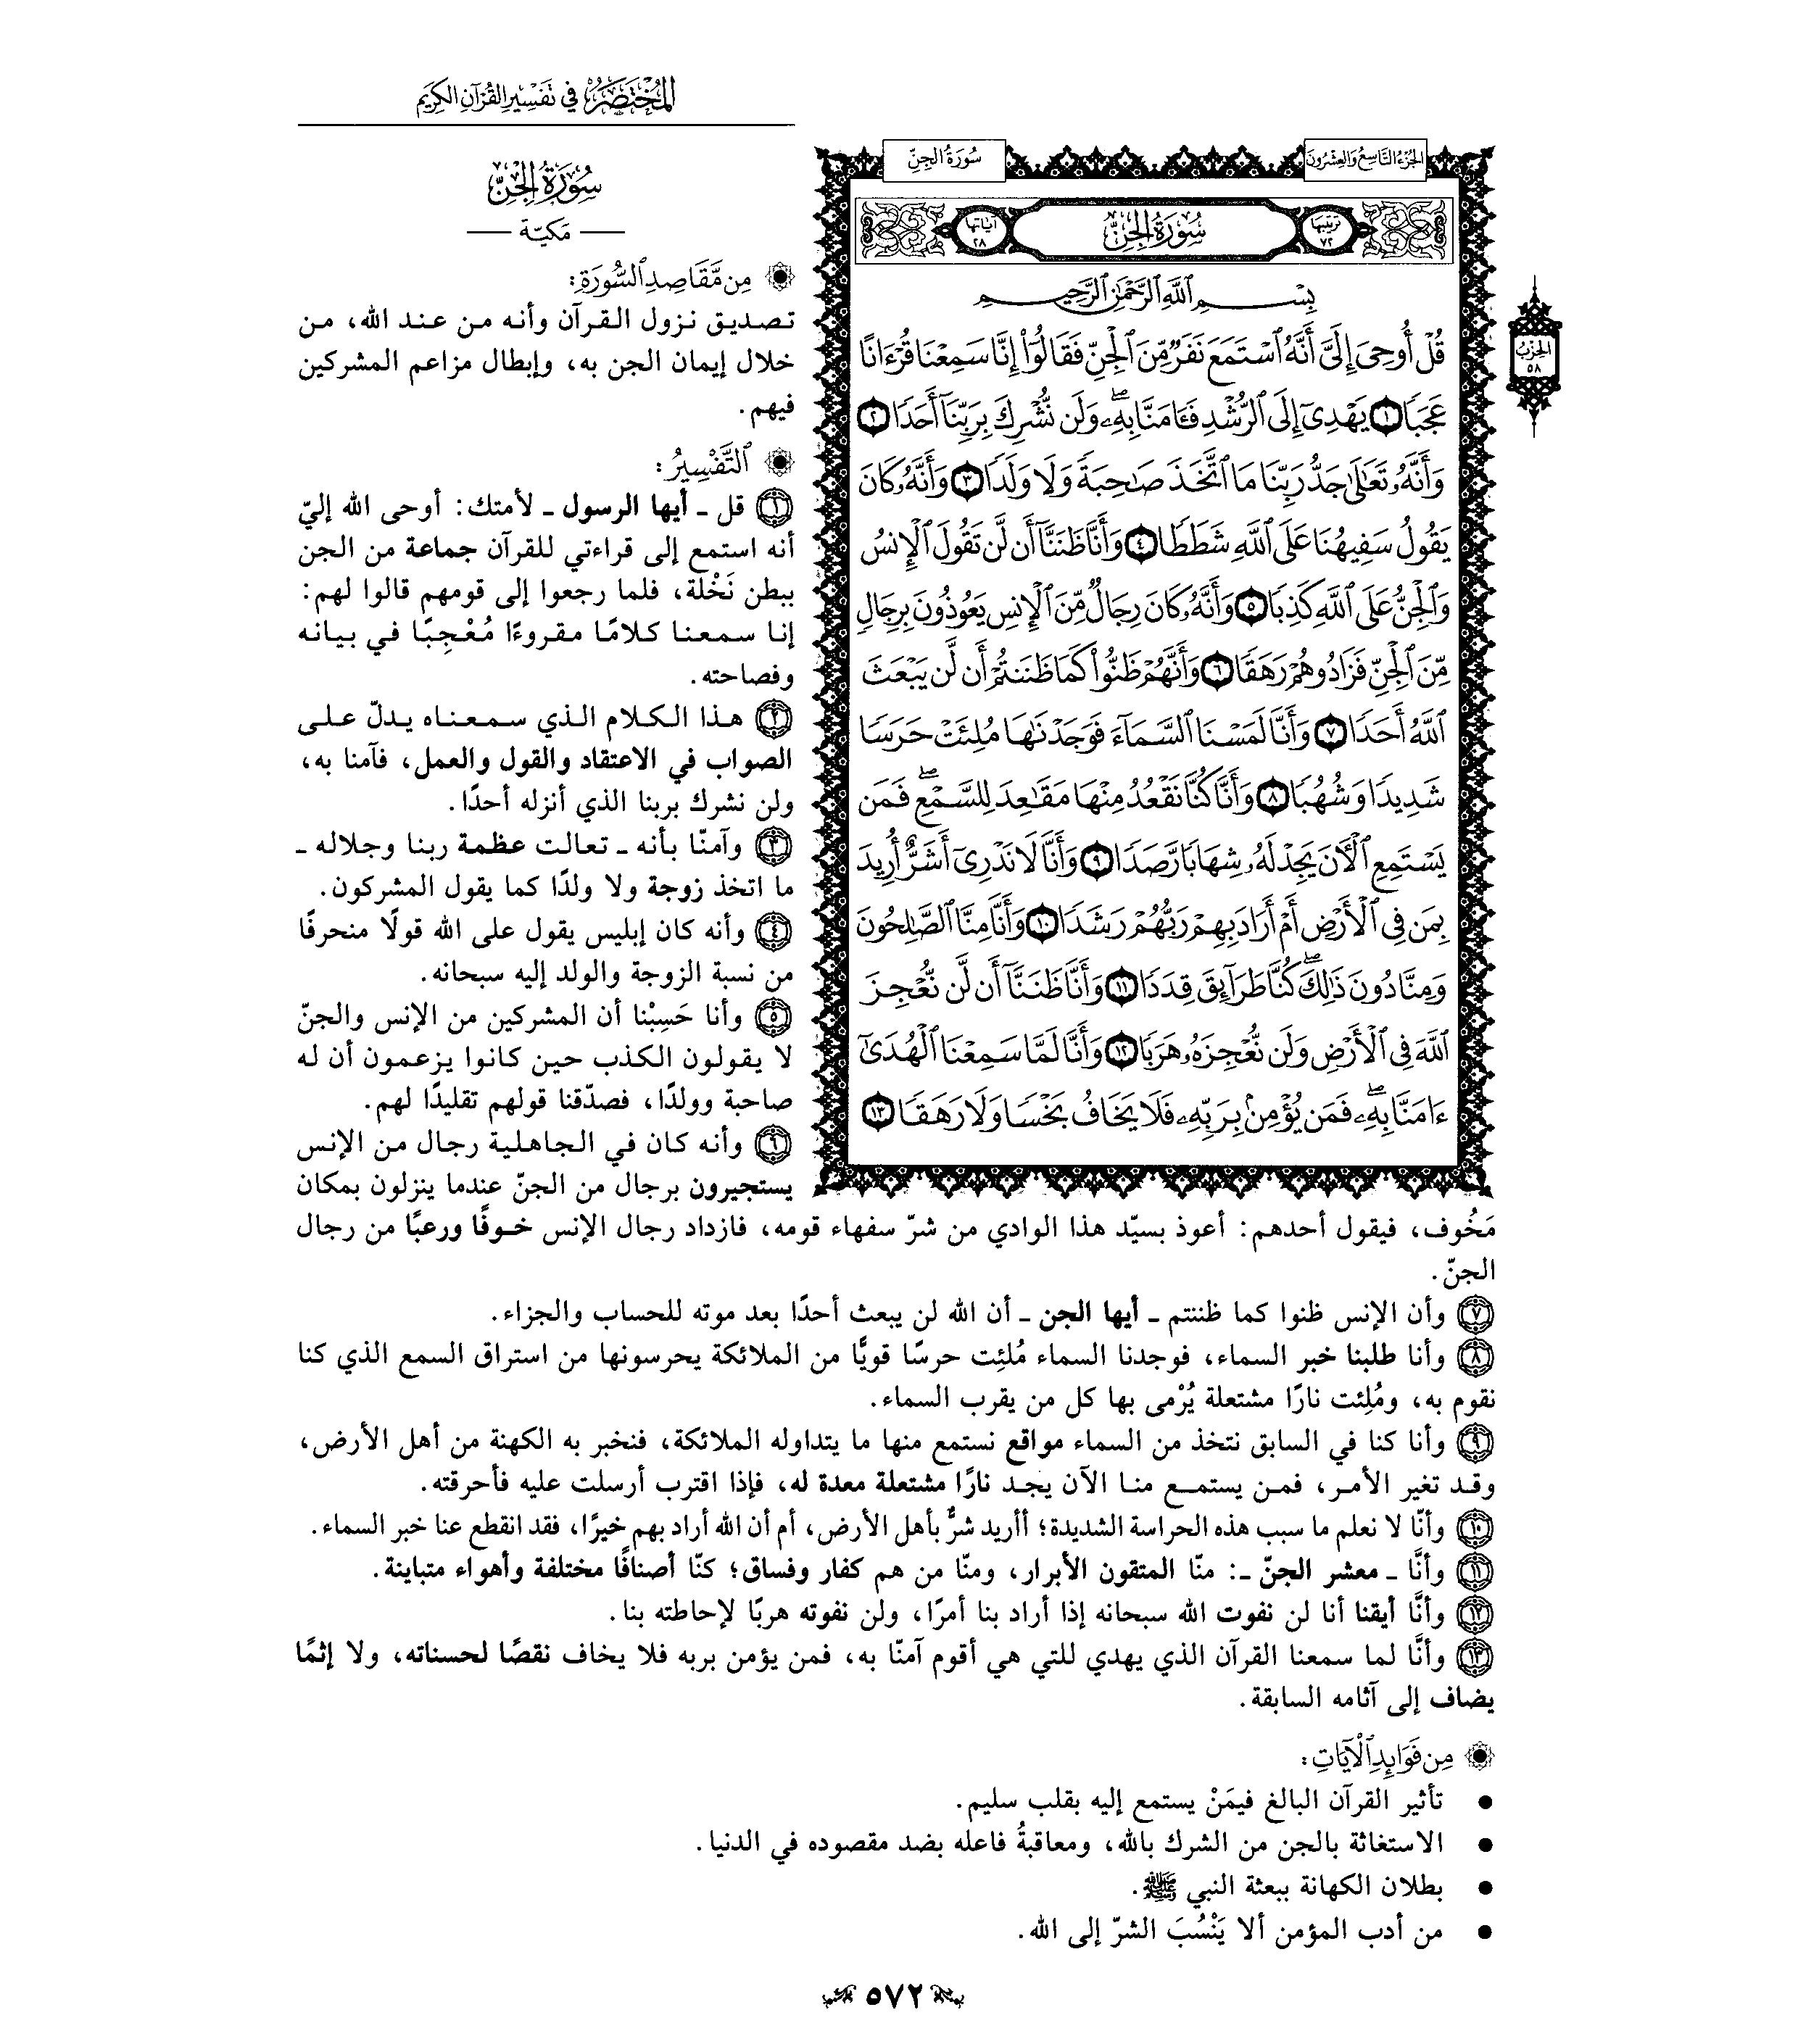 المُخْتَصَرُ في تَفْسِيرِ القُرْآنِ الكَرِيمِ
الجُزْءُ التَّاسِعُ وَالعِشْرُونَ
سُورَةُ الجِنِّ
ترتيبها ٧٢
سُورَةُ الجِنِّ
آياتها ٢٨
الحِزْبُ ٥٨
بِسْمِ ٱللَّهِ ٱلرَّحْمَٰنِ ٱلرَّحِيمِ
قُلْ أُوحِىَ إِلَىَّ أَنَّهُ ٱسْتَمَعَ نَفَرٌ مِّنَ ٱلْجِنِّ فَقَالُوٓا۟ إِنَّا سَمِعْنَا قُرْءَانًا
عَجَبًا ١ يَهْدِىٓ إِلَى ٱلرُّشْدِ فَـَٔامَنَّا بِهِۦ ۖ وَلَن نُّشْرِكَ بِرَبِّنَآ أَحَدًا ٢
وَأَنَّهُۥ تَعَٰلَىٰ جَدُّ رَبِّنَا مَا ٱتَّخَذَ صَٰحِبَةً وَلَا وَلَدًا ٣ وَأَنَّهُۥ كَانَ
يَقُولُ سَفِيهُنَا عَلَى ٱللَّهِ شَطَطًا ٤ وَأَنَّا ظَنَنَّآ أَن لَّن تَقُولَ ٱلْإِنسُ
وَٱلْجِنُّ عَلَى ٱللَّهِ كَذِبًا ٥ وَأَنَّهُۥ كَانَ رِجَالٌ مِّنَ ٱلْإِنسِ يَعُوذُونَ بِرِجَالٍ
مِّنَ ٱلْجِنِّ فَزَادُوهُمْ رَهَقًا ٦ وَأَنَّهُمْ ظَنُّوا۟ كَمَا ظَنَنتُمْ أَن لَّن يَبْعَثَ
ٱللَّهُ أَحَدًا ٧ وَأَنَّا لَمَسْنَا ٱلسَّمَآءَ فَوَجَدْنَٰهَا مُلِئَتْ حَرَسًا
شَدِيدًا وَشُهُبًا ٨ وَأَنَّا كُنَّا نَقْعُدُ مِنْهَا مَقَٰعِدَ لِلسَّمْعِ ۖ فَمَن
يَسْتَمِعِ ٱلْـَٔانَ يَجِدْ لَهُۥ شِهَابًا رَّصَدًا ٩ وَأَنَّا لَا نَدْرِىٓ أَشَرٌّ أُرِيدَ
بِمَن فِى ٱلْأَرْضِ أَمْ أَرَادَ بِهِمْ رَبُّهُمْ رَشَدًا ١٠ وَأَنَّا مِنَّا ٱلصَّٰلِحُونَ
وَمِنَّا دُونَ ذَٰلِكَ ۖ كُنَّا طَرَآئِقَ قِدَدًا ١١ وَأَنَّا ظَنَنَّآ أَن لَّن نُّعْجِزَ
ٱللَّهَ فِى ٱلْأَرْضِ وَلَن نُّعْجِزَهُۥ هَرَبًا ١٢ وَأَنَّا لَمَّا سَمِعْنَا ٱلْهُدَىٰٓ
ءَامَنَّا بِهِۦ ۖ فَمَن يُؤْمِنۢ بِرَبِّهِۦ فَلَا يَخَافُ بَخْسًا وَلَا رَهَقًا ١٣
سُورَةُ الجِنِّ
مَكيّة
مِن مَّقَاصِدِ ٱلسُّورَةِ:
تصديق نزول القرآن وأنه من عند الله، من
خلال إيمان الجن به، وإبطال مزاعم المشركين
فيهم.
ٱلتَّفْسِيرُ:
١ قل ـ أيها الرسول ـ لأمتك: أوحى الله إليّ
أنه استمع إلى قراءتي للقرآن جماعة من الجن
ببطن نَخْلة، فلما رجعوا إلى قومهم قالوا لهم:
إنا سمعنا كلامًا مقروءًا مُعْجِبًا في بيانه
وفصاحته.
٢ هذا الكلام الذي سمعناه يدلّ على
الصواب في الاعتقاد والقول والعمل، فآمنا به،
ولن نشرك بربنا الذي أنزله أحدًا.
٣ وآمنّا بأنه ـ تعالت عظمة ربنا وجلاله ـ
ما اتخذ زوجة ولا ولدًا كما يقول المشركون.
٤ وأنه كان إبليس يقول على الله قولًا منحرفًا
من نسبة الزوجة والولد إليه سبحانه.
٥ وأنا حَسِبْنا أن المشركين من الإنس والجنّ
لا يقولون الكذب حين كانوا يزعمون أن له
صاحبة وولدًا، فصدّقنا قولهم تقليدًا لهم.
٦ وأنه كان في الجاهلية رجال من الإنس
يستجيرون برجال من الجنّ عندما ينزلون بمكان
مَخُوف، فيقول أحدهم: أعوذ بسيّد هذا الوادي من شرّ سفهاء قومه، فازداد رجال الإنس خوفًا ورعبًا من رجال
الجنّ.
٧ وأن الإنس ظنوا كما ظننتم ـ أيها الجن ـ أن الله لن يبعث أحدًا بعد موته للحساب والجزاء.
٨ وأنا طلبنا خبر السماء، فوجدنا السماء مُلئِت حرسًا قويًّا من الملائكة يحرسونها من استراق السمع الذي كنا
نقوم به، ومُلِئت نارًا مشتعلة يُرْمى بها كل من يقرب السماء.
٩ وأنا كنا في السابق نتخذ من السماء مواقع نستمع منها ما يتداوله الملائكة، فنخبر به الكهنة من أهل الأرض،
وقد تغير الأمر، فمن يستمع منا الآن يجد نارًا مشتعلة معدة له، فإذا اقترب أرسلت عليه فأحرقته.
١٠ وأنّا لا نعلم ما سبب هذه الحراسة الشديدة؛ أأريد شرٌّ بأهل الأرض، أم أن الله أراد بهم خيرًا، فقد انقطع عنا خبر السماء.
١١ وأنَّا ـ معشر الجنّ ـ: منّا المتقون الأبرار، ومنّا من هم كفار وفساق؛ كنّا أصنافًا مختلفة وأهواء متباينة.
١٢ وأنَّا أيقنا أنا لن نفوت الله سبحانه إذا أراد بنا أمرًا، ولن نفوته هربًا لإحاطته بنا.
١٣ وأنَّا لما سمعنا القرآن الذي يهدي للتي هي أقوم آمنّا به، فمن يؤمن بربه فلا يخاف نقصًا لحسناته، ولا إثمًا
يضاف إلى آثامه السابقة.
مِن فَوَائِدِ ٱلْآيَاتِ:
● تأثير القرآن البالغ فيمَنْ يستمع إليه بقلب سليم.
● الاستغاثة بالجن من الشرك بالله، ومعاقبةُ فاعله بضد مقصوده في الدنيا.
● بطلان الكهانة ببعثة النبي ﷺ.
● من أدب المؤمن ألا يَنْسُبَ الشرّ إلى الله.
٥٧٢